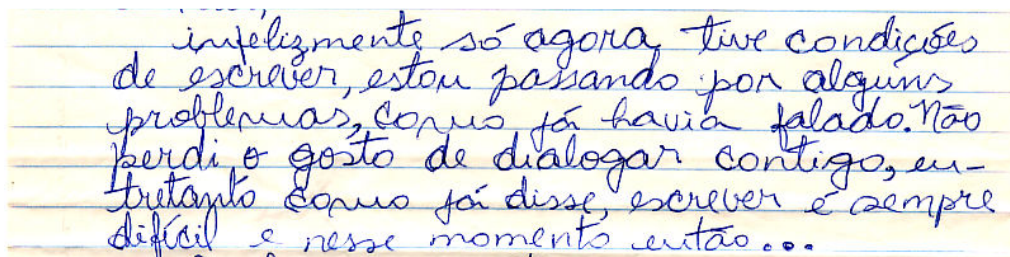 infelizmente só agora, tive condições
de escrever, estou passando por alguns
problemas, como já havia falado. Não
perdi o gosto de dialogar contigo, en-
tretanto como já disse, escrever é sempre
difícil e nesse momento então...